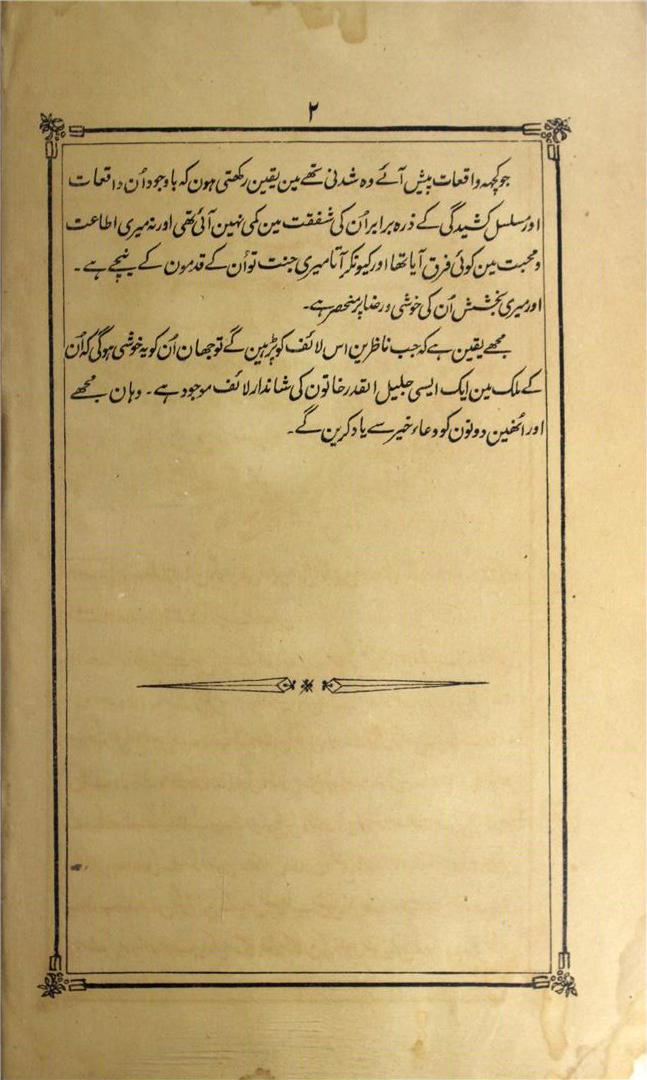 ۲
جو کچھہ واقعات پیش آئے وہ شدنی تھے مین یقین رکھتی ہون کہ باوجود اُن واقعات
اور مسلسل کشیدگی کے ذرہ برابر اُن کی شفقت مین کمی نہین آئی تھی اور نہ میری اطاعت
و محبت مین کوئی فرق آیا تھا اور کیونکر آتا میری جنت تو اُن کے قدمون کے نیچے ہے۔
اور میری بخشش اُن کی خوشی و رضا پر منحصر ہے۔
مجھے یقین ہے کہ جب ناظرین اس لائف کو پڑہین گے تو جہان اُن کو یہ خوشی ہوگی کہ اُن
کے ملک مین ایک ایسی جلیل القدر خاتون کی شاندار لائف موجود ہے۔ وہان مجھے
اور اُنھین دونون کو دعاء خیر سے یاد کرین گے۔